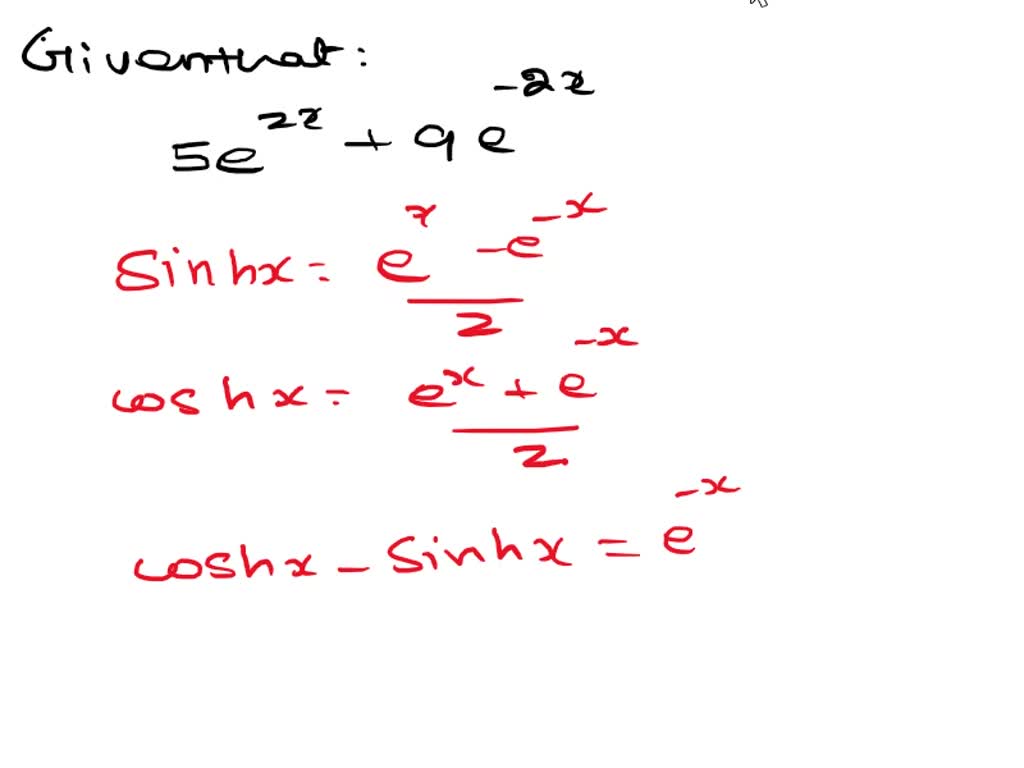 Given that:
5e^{2x} + 9e^{-2x}
Sinhx = \frac{e^x - e^{-x}}{2}
coshx = \frac{e^x + e^{-x}}{2}
coshx - sinhx = e^{-x}